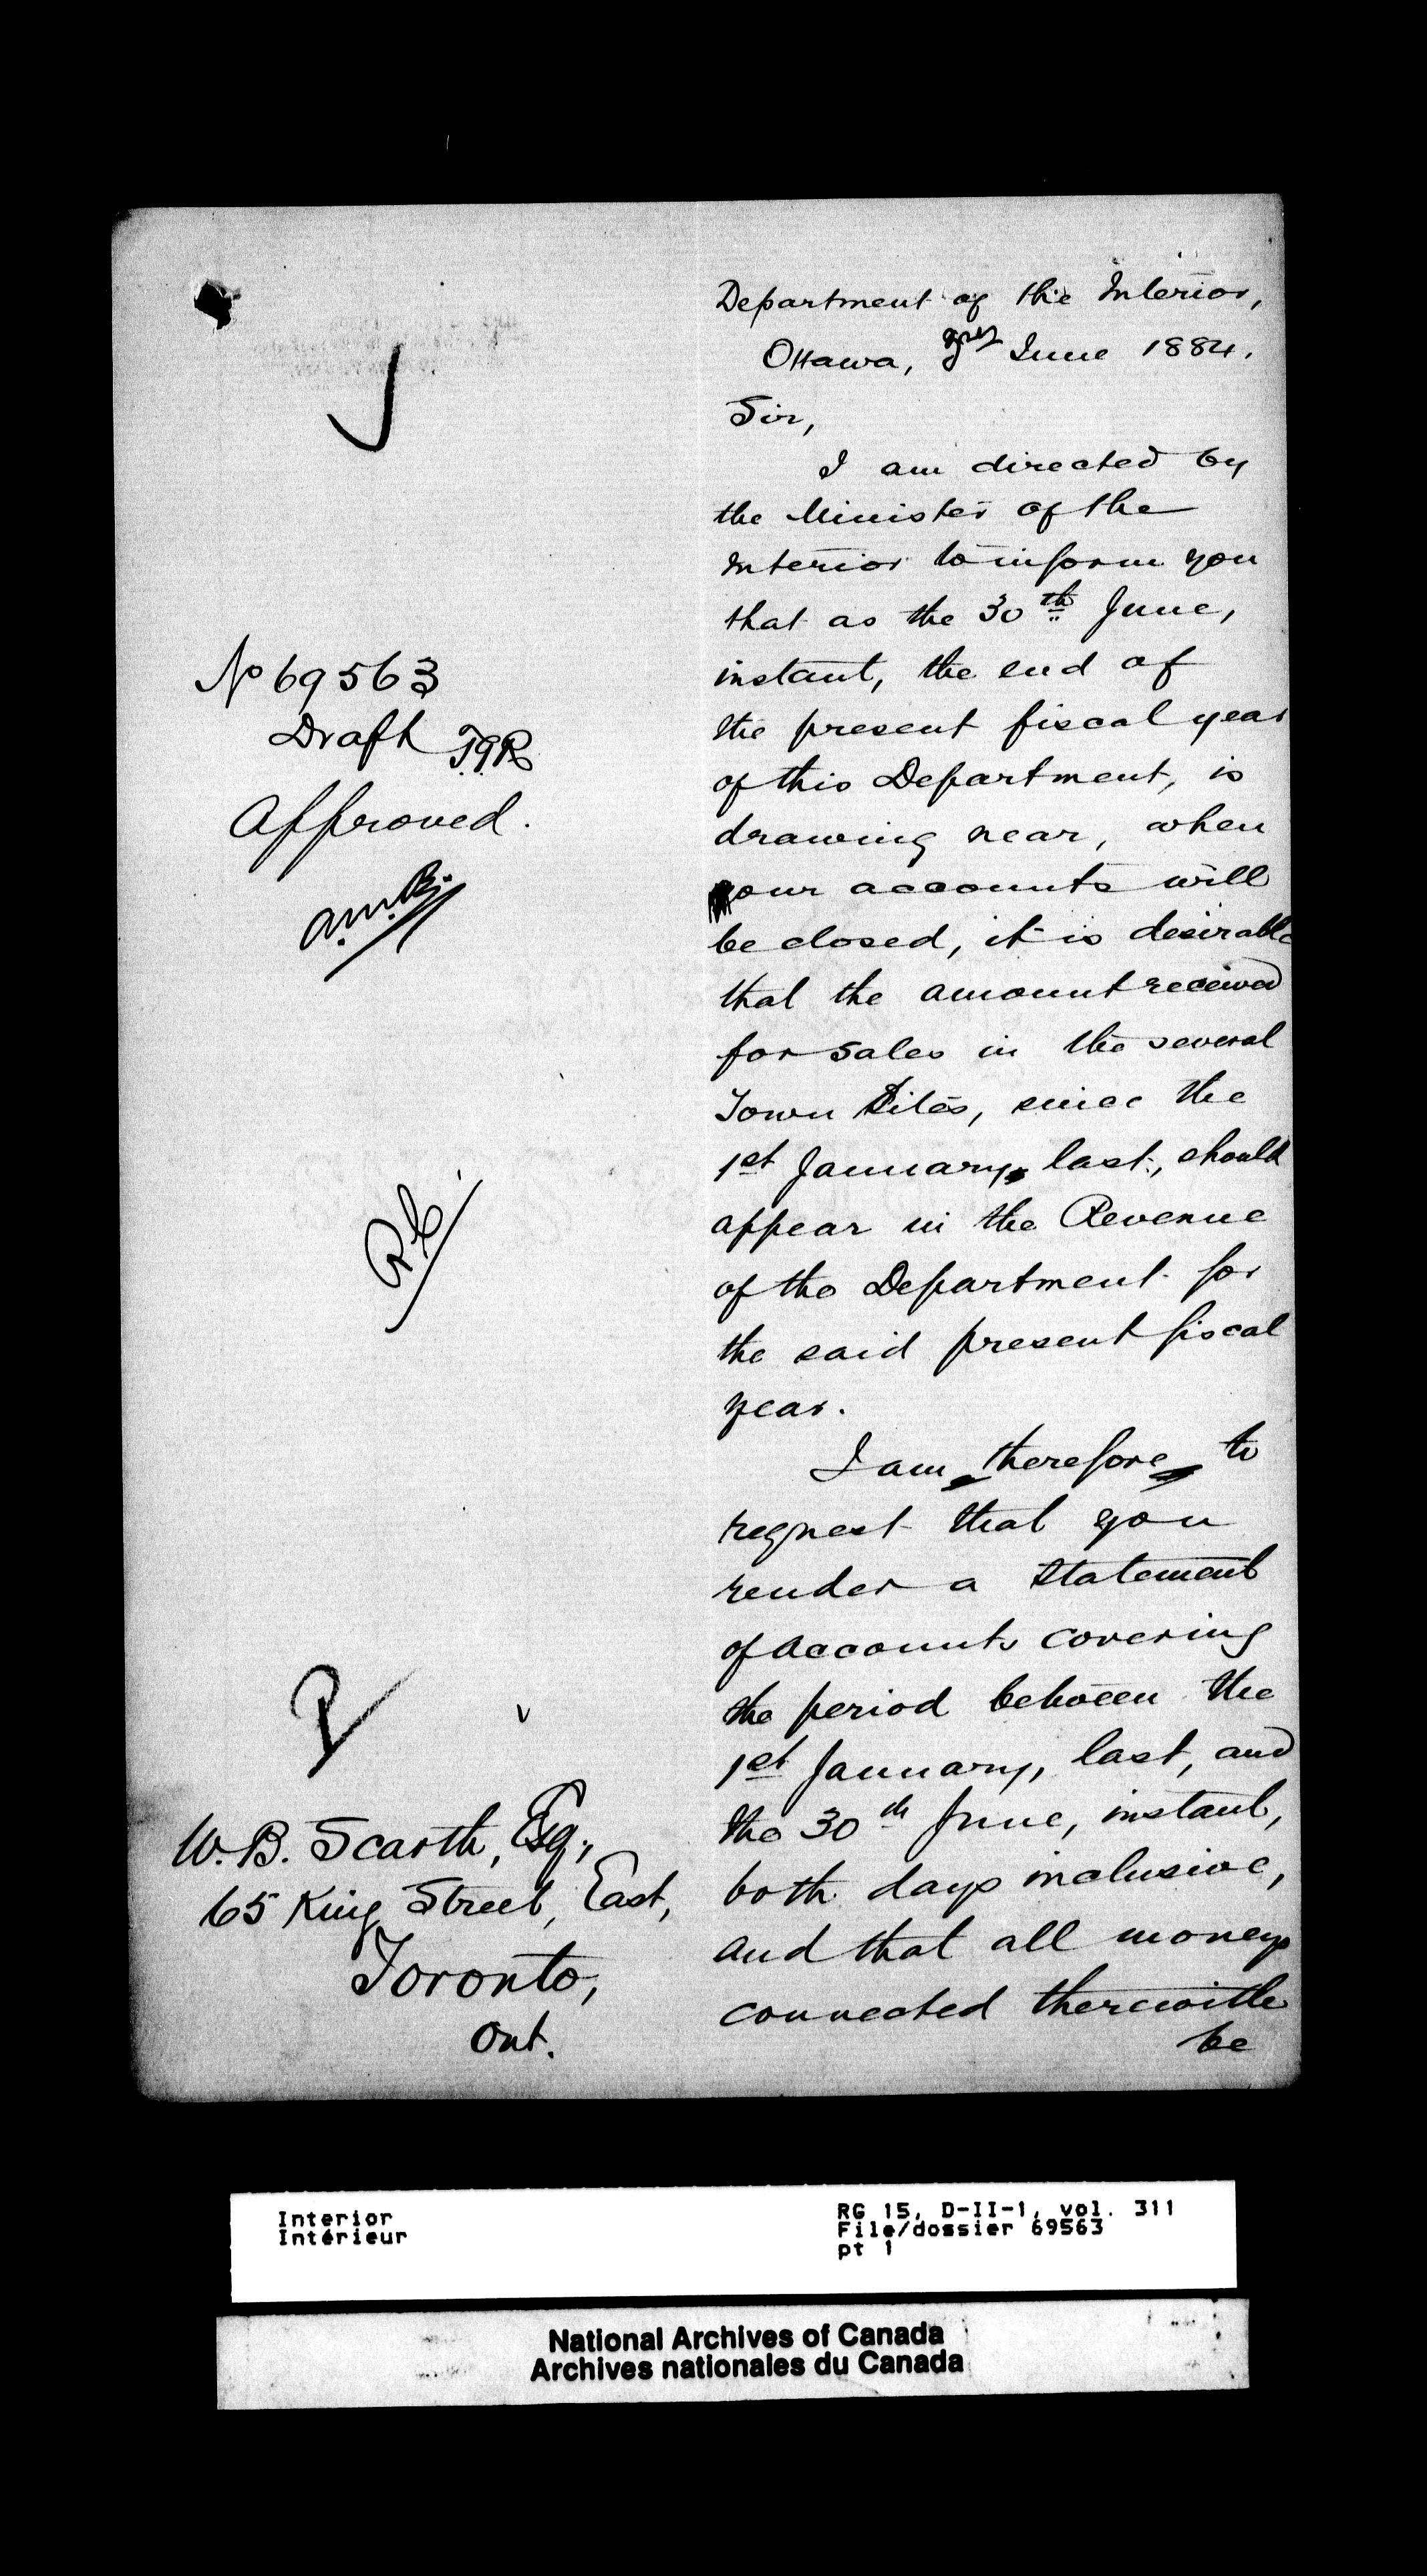 Department of the Interior,
Ottawa, June 1884.
Sir,
I am directed by
the Minister of the
Interior to inform you
that as the 30th June,
instant, the end of
the present fiscal year
of this Department, is
drawing near, when
our accounts will
be closed, it is desirable
that the amount received
for sales in the several
Town Sites, since the
1st January, last, should
appear in the Revenue
of the Department for
the said present fiscal
year.
I am therefore to
request that you
render a statement
of accounts covering
the period between the
1st January, last, and
the 30th June, instant,
both days inclusive,
and that all moneys
connected therewith
be
No 69563
Draft
Approved.
A.M.B.
W. B. Scarth, Esq.,
65 King Street, East,
Toronto,
Ont.
Interior
Intérieur
RG 15, D-II-1, vol. 311
File/dossier 69563
pt 1
National Archives of Canada
Archives nationales du Canada